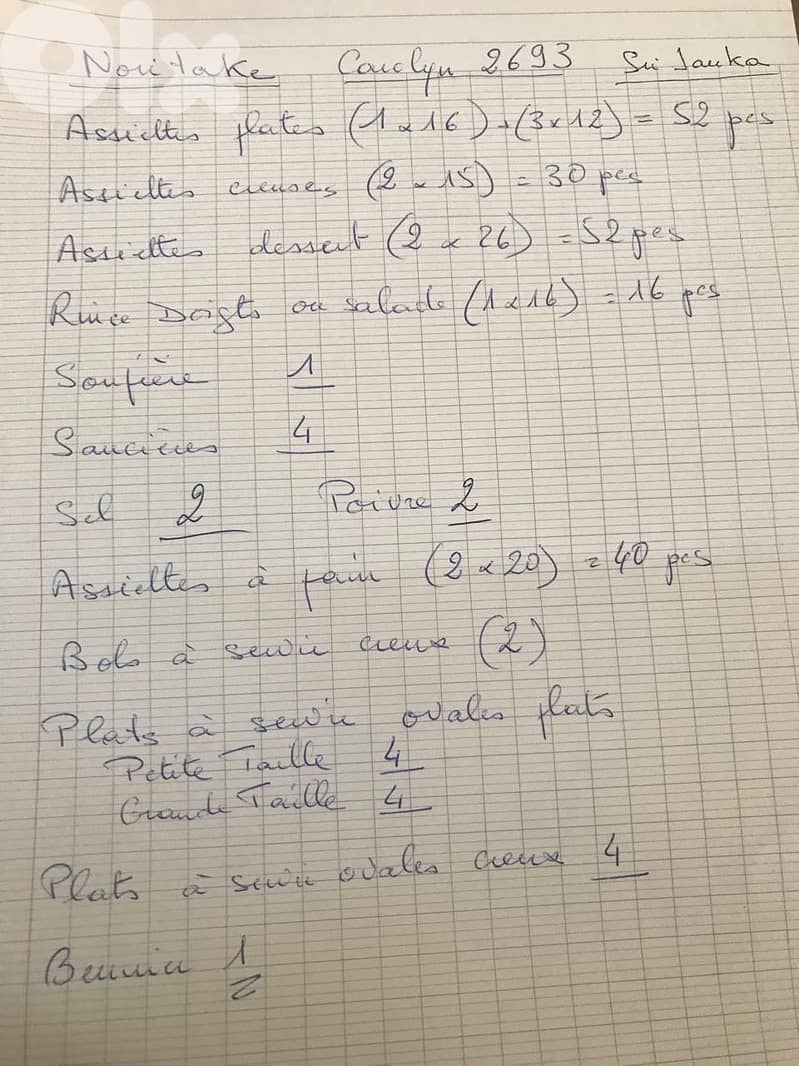 olx
Noritake Carolyn 2693 Sri Lanka
Assiettes plates (1 x 16) + (3 x 12) = 52 pcs
Assiettes creuses (2 x 15) = 30 pcs
Assiettes dessert (2 x 26) = 52 pcs
Rince Doigts ou salade (1 x 16) = 16 pcs
Soupière 1
Saucières 4
Sel 2 Poivre 2
Assiettes à pain (2 x 20) = 40 pcs
Bols à servir creux (2)
Plats à servir ovales plats
Petite Taille 4
Grande Taille 4
Plats à servir ovales creux 4
Beurrier 1